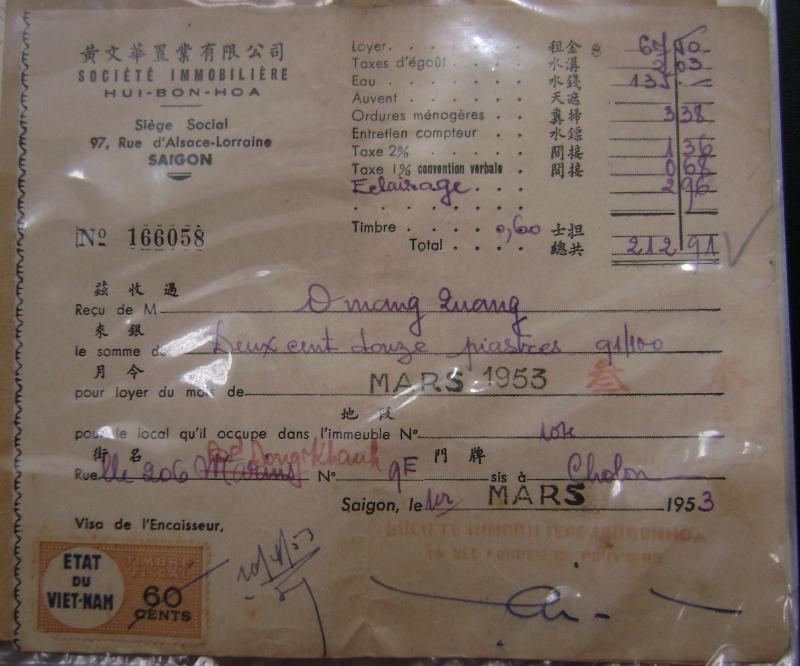 黃文華置業有限公司
SOCIÉTÉ IMMOBILIÈRE
HUI-BON-HOA
Siège Social
97, Rue d'Alsace-Lorraine
SAIGON
Nº 166058
Loyer. 租金 $ 67 10
Taxes d'égoût 水溝 2 03
Eau 水錢 135 —
Auvent 天遮
Ordures ménagères 糞掃 3 38
Entretien compteur 水鏢
Taxe 2% 間接 1 36
Taxe 1% convention verbale 間接 0 68
Eclairage 2 96
Timbre 0,60 士担
Total 總共 212 91
茲收過
Reçu de M
來銀
le somme de Deux cent douze piastres 91/100
月令
pour loyer du mois de MARS 1953 叁
地段
pour le local qu'il occupe dans l'immeuble Nº
街名 門牌
Rue 206 Marins Bd Dong-Khanh Nº 9E sis à Cholon
Saigon, le 1er MARS 1953
Visa de l'Encaisseur,
SOCIÉTÉ IMMOBILIÈRE HUIBONHOA
ETAT
DU
VIET-NAM
TIMBRE
FISCAL
60
CENTS